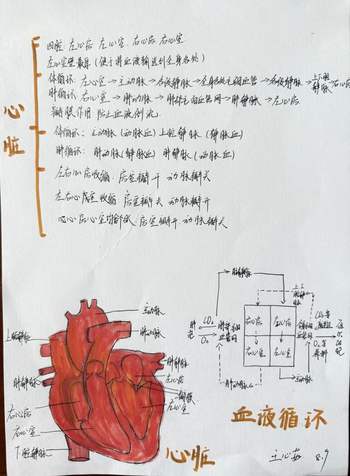 心脏
四腔 左心房 左心室 右心房 右心室
左心室壁最厚(便于将血液输送到全身各处)
体循环 左心室→主动脉→各级动脉→全身各处毛细血管→各级静脉→上下腔静脉→右心房
肺循环 右心室→肺动脉→肺部毛细血管网→肺静脉→左心房
瓣膜作用 防止血液倒流
体循环: 主动脉(动脉血) 上腔静脉(静脉血)
肺循环: 肺动脉(静脉血) 肺静脉(动脉血)
左右心房收缩: 房室瓣开 动脉瓣关
左右心室收缩 房室瓣关 动脉瓣开
房室瓣开 动脉瓣关
主动脉
上腔静脉
肺动脉
肺静脉
肺静脉
左心房
瓣膜
右心房
左心室
右心室
下腔静脉
心脏
肺静脉
CO₂
O₂
右心房
左心房
右心室
左心室
肺动脉
主动脉
CO₂等
O₂等
血液循环
8.9